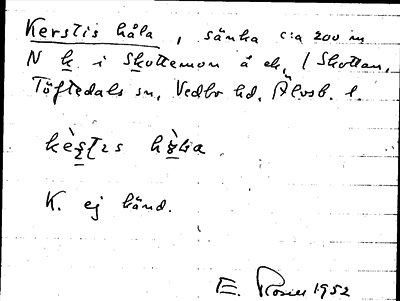 Kerstis håla, sänka c:a 200 m
N k. i Skottemon å ek. / Skottan,
Töftedals sn, Vedbo hd, Älvsb. l.
K. ej känd.
E. Rosell 1952